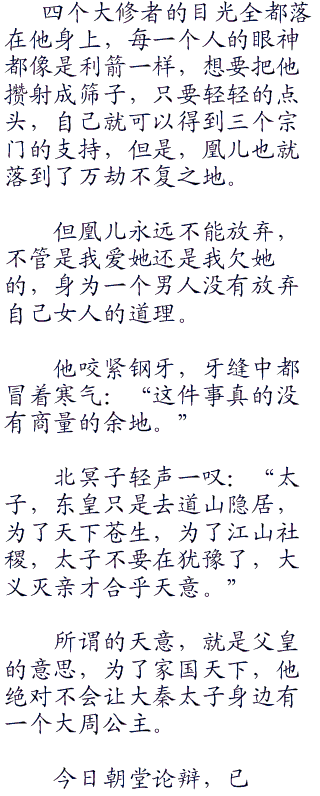 四个大修者的目光全都落
在他身上，每一个人的眼神
都像是利箭一样，想要把他
攒射成筛子，只要轻轻的点
头，自己就可以得到三个宗
门的支持，但是，凰儿也就
落到了万劫不复之地。
但凰儿永远不能放弃，
不管是我爱她还是我欠她
的，身为一个男人没有放弃
自己女人的道理。
他咬紧钢牙，牙缝中都
冒着寒气：“这件事真的没
有商量的余地。”
北冥子轻声一叹：“太
子，东皇只是去道山隐居，
为了天下苍生，为了江山社
稷，太子不要在犹豫了，大
义灭亲才合乎天意。”
所谓的天意，就是父皇
的意思，为了家国天下，他
绝对不会让大秦太子身边有
一个大周公主。
今日朝堂论辩，已